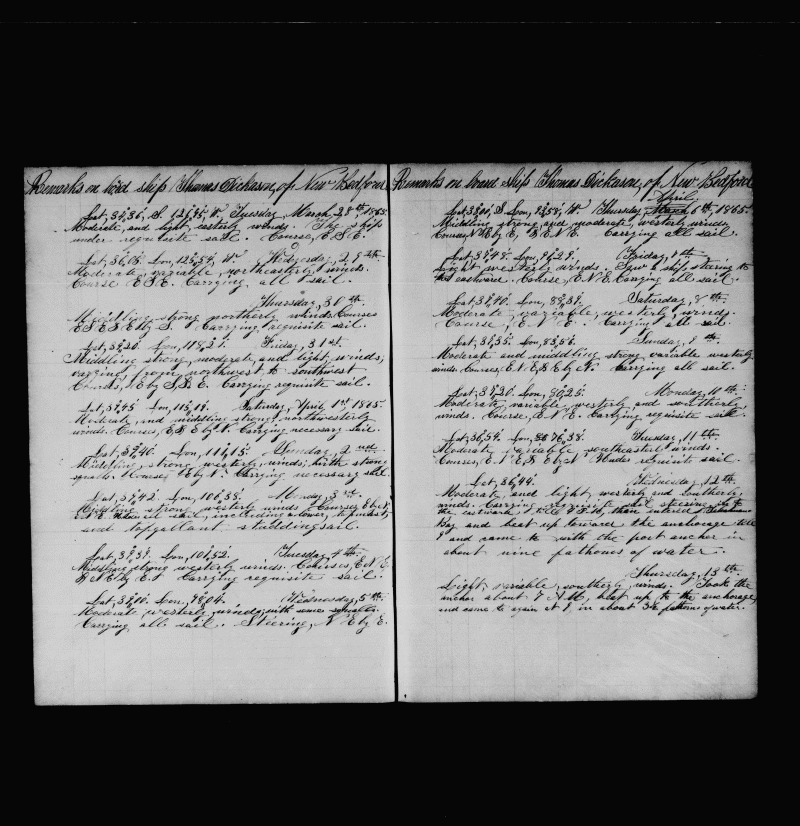 Remarks on bord ship Thomas Dickason, of New Bedford
Lat, 37,36, S. 121,45, W. Tuesday, March 28th, 1865.
Moderate, and light, easterly winds. The ship
under requisite sail. Course, E.S.E.
Lat, 36,03. 122,54, W. Wednesday, 29th.
Moderate, variable, northeasterly winds.
Course E.S.E. Carrying all sail.
Thursday, 30th.
Middling strong northerly winds. Courses
E.S.E, E by S. Carrying requisite sail.
Friday, 31st.
Middling strong, moderate, and light, winds,
varying from northwest to southwest
Courses, E by S, & E. Carrying requisite sail.
Lat, 37,45 Lon, 115,19. Saturday, April 1st, 1865.
Moderate, and middling strong, northwesterly
winds. Courses, E, & E by N. Carrying necessary sail.
Lat, 37,40. Lon, 111,15. Sunday, 2nd
Middling strong westerly winds; with strong
squalls. Course, E by N. Carrying necessary sail.
Lat, 37,42. Lon, 106,58. Monday, 3rd.
Middling strong westerly winds Courses, E by N,
E.N.E. sail, including a lower, topmast,
and topgallant studdingsail.
Lat, 37,39. Lon, 101,52. Tuesday, 4th.
Middling strong westerly winds. Courses, E.N.E,
& N.E by E. Carrying requisite sail.
Lat, 37,00. Lon, 97,04. Wednesday, 5th.
Moderate westerly, winds; with some squalls.
Carrying all sail. Steering, N.E by E.
Remarks on board ship Thomas Dickason, of New Bedford
April,
Lat, 37,00, S. Lon, 92,58, W. Thursday, March 6th, 1865.
Middling strong, and moderate, westerly winds.
Courses, N.E by E, & E.N.E. Carrying all sail.
Friday, 7th.
Light westerly winds. Saw a ship steering to
the eastward. Course, E.N.E. Carrying all sail.
Lat, 37,40. Lon, 87,39. Saturday, 8th.
Moderate, variable, westerly winds.
Course, E.N.E. Carrying all sail.
Lat, 37,35. Lon, 83,56. Sunday, 9th.
Moderate and middling strong variable westerly
winds. Courses, E.N.E, & E by N. Carrying all sail.
Lat, 37,20. Lon, 80,25. Monday, 10th.
Moderate, variable, westerly and southerly
winds. Course, E.N.E. Carrying requisite sail.
Lat, 36,54. Lon, 76,38. Tuesday, 11th.
Moderate variable southeasterly winds.
Courses, E.N.E, & E by N. Under requisite sail.
Lat, 36,44. Wednesday, 12th.
Moderate, and light, westerly and southerly,
winds. Carrying requisite sail steering to
the eastward till then entered
Bay and beat up towards the anchorage till
9 and came to with the port anchor in
about nine fathoms of water.
Thursday, 13th.
Light, variable, southerly winds. Took the
anchor about 7 AM, beat up to the anchorage,
and came to again at 9 in about 3½ fathoms of water.